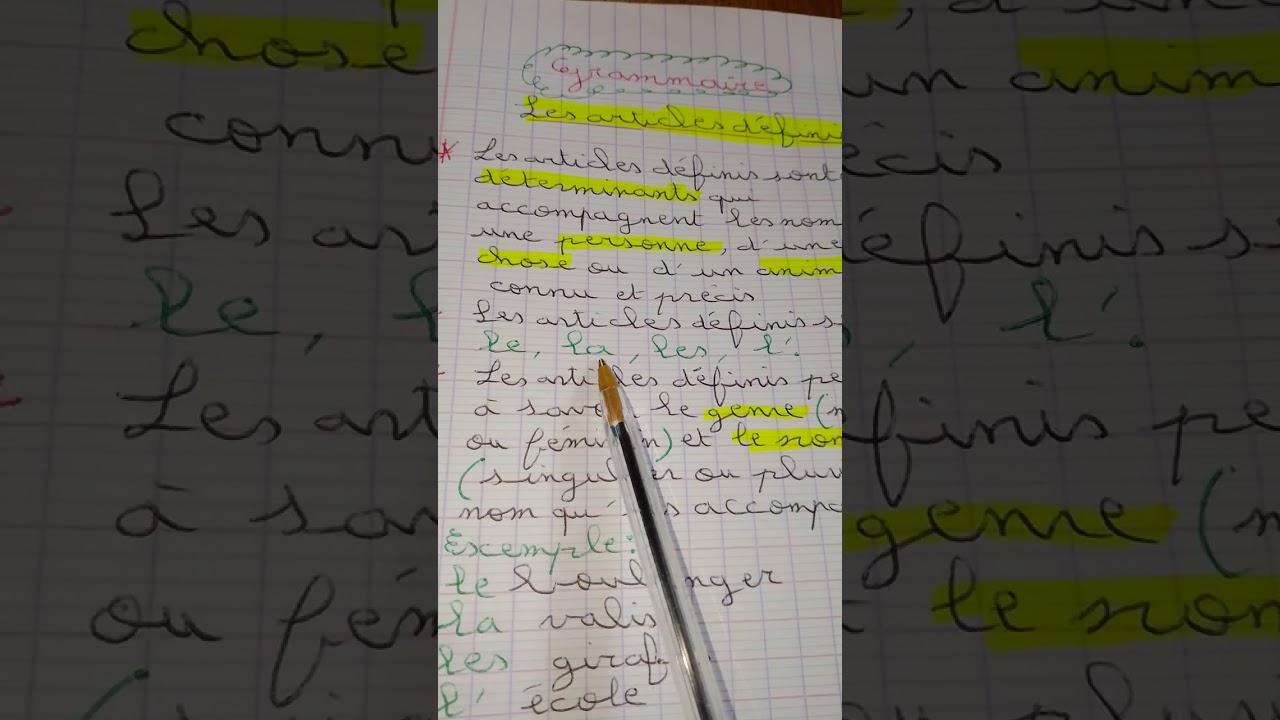 Grammaire
Les articles défini
Les articles définis sont
determinants qui
accompagnent les nom
une personne, d'une
chose ou d'un anim
connu et précis
Les articles définis s
le, la, les, l'.
Les articles définis pe
à savo le genre (m
ou féminin) et le nom
(singulier ou pluri
nom qu'ils accompa
Exemple:
le boulanger
la valis
les giraf
l' école